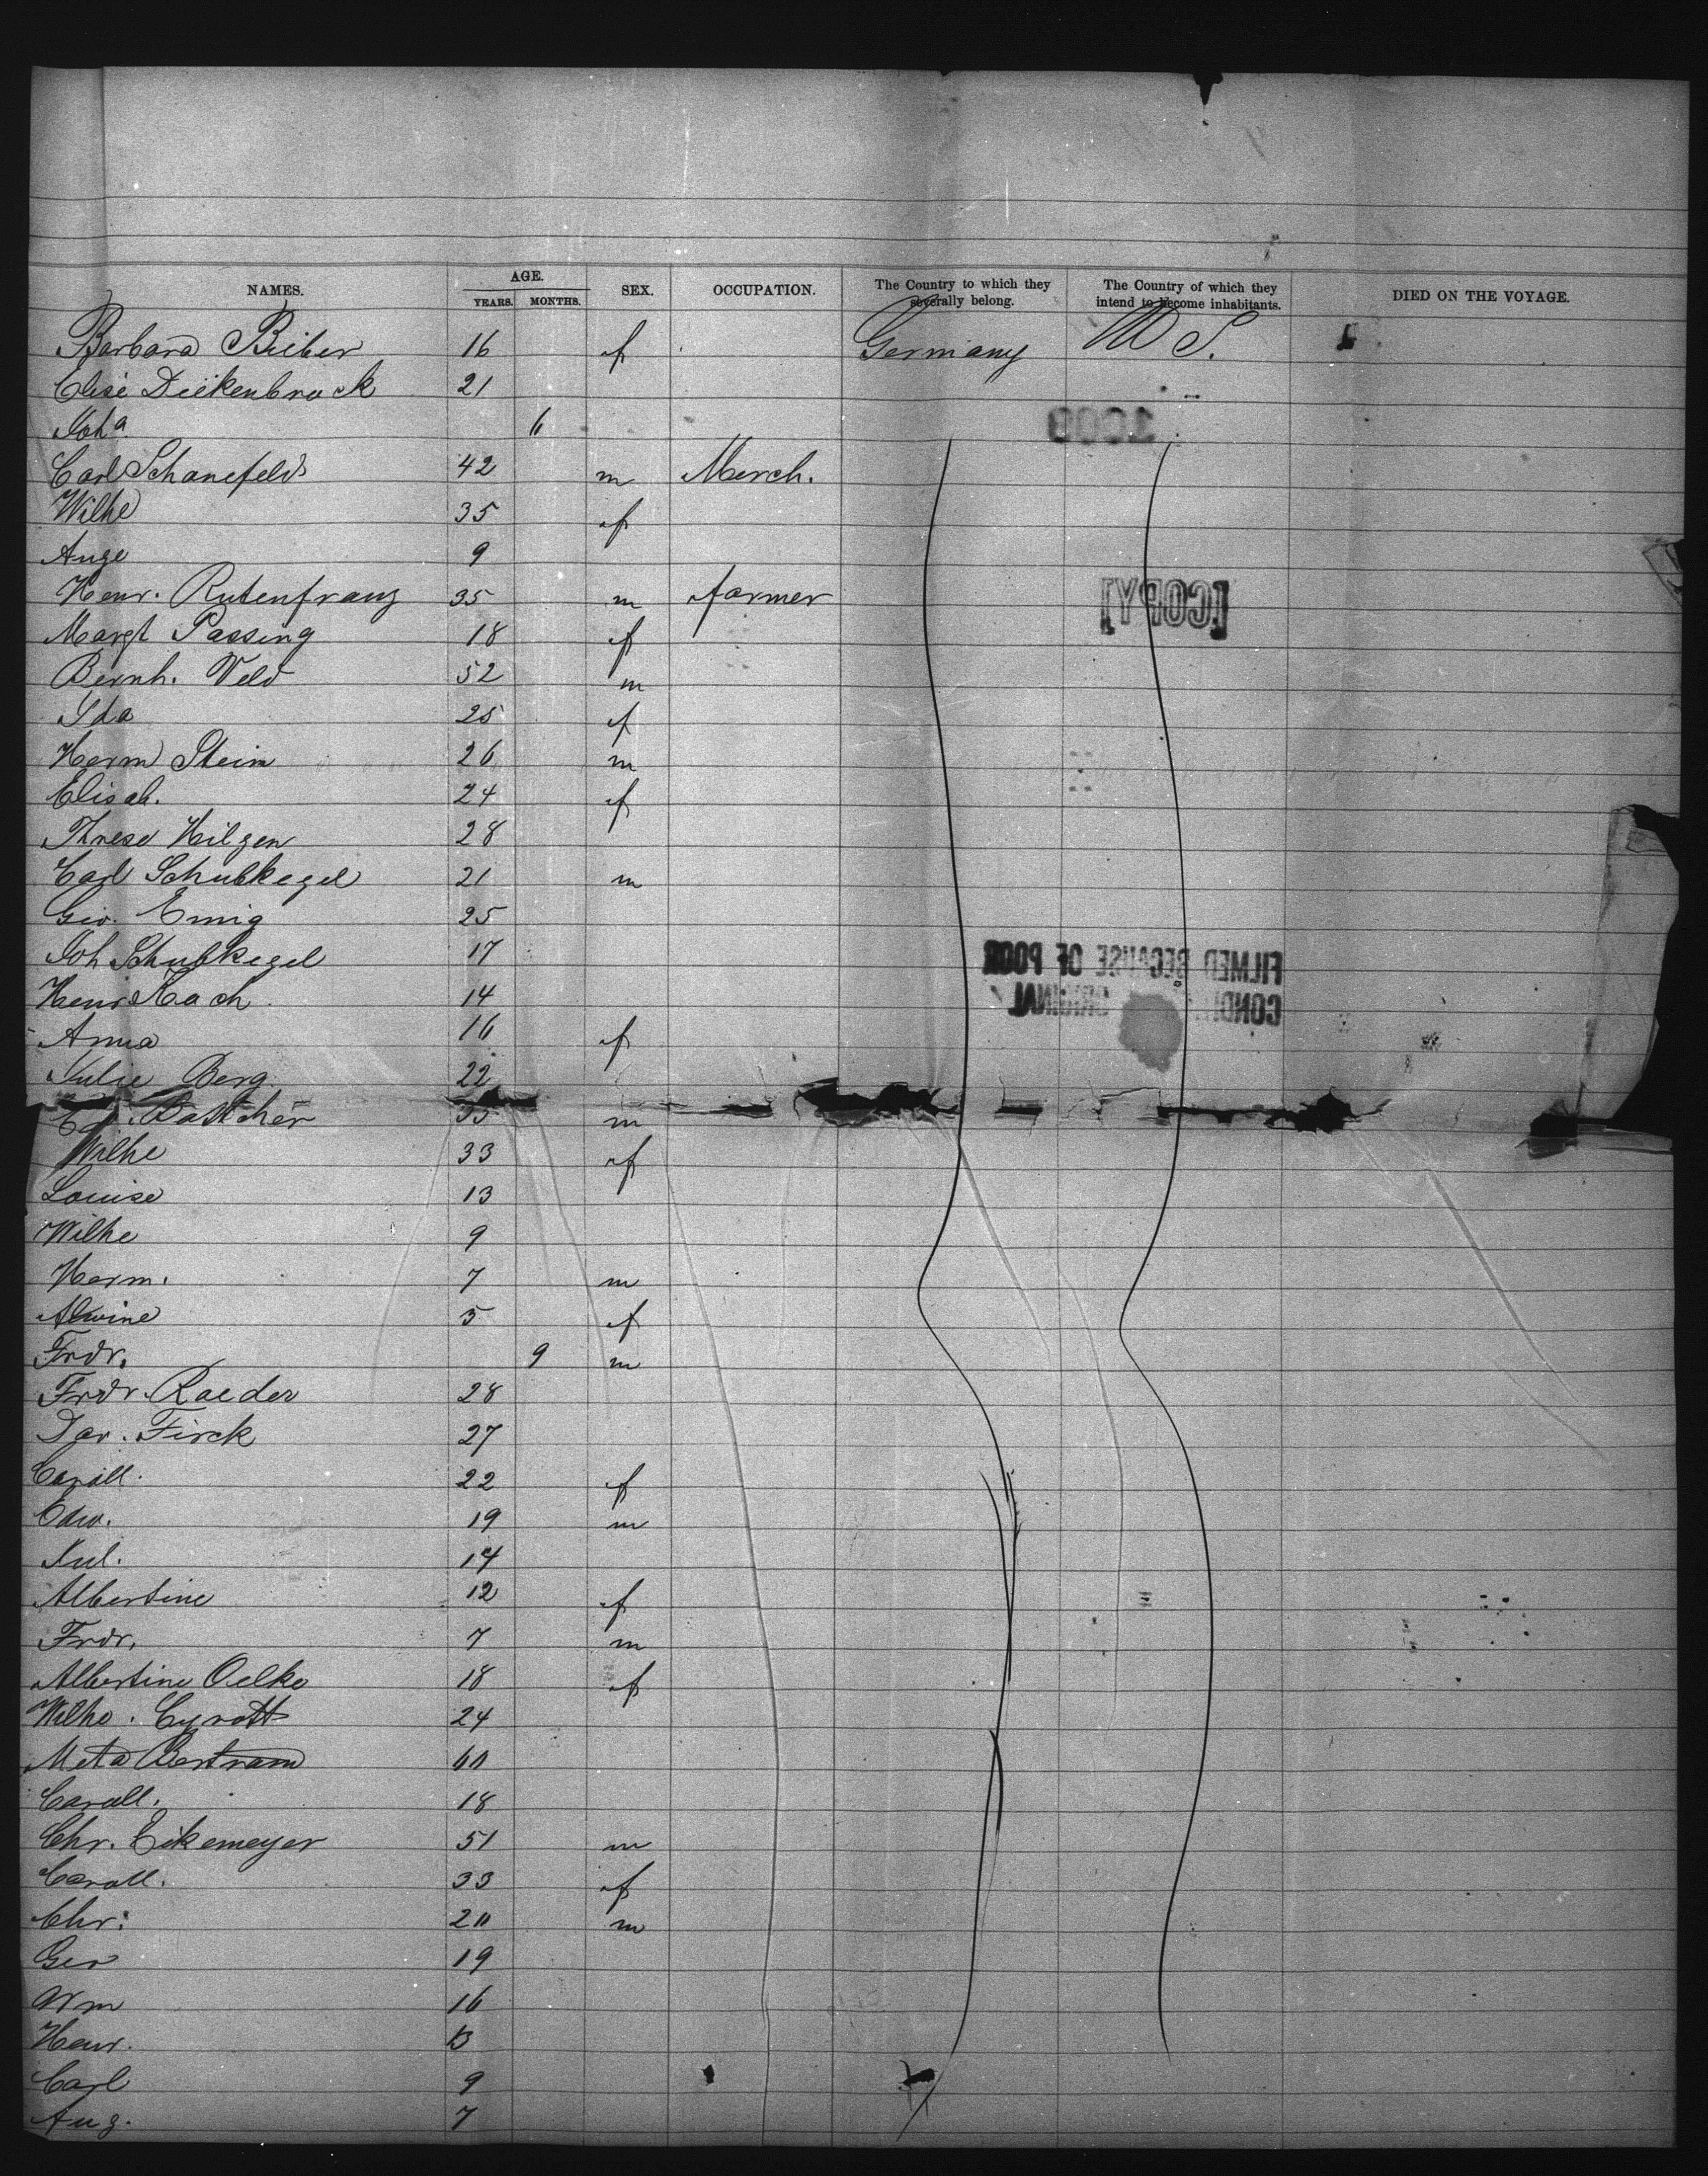 AGE.
NAMES. YEARS. MONTHS. SEX. OCCUPATION. The Country to which they severally belong. The Country of which they intend to become inhabitants. DIED ON THE VOYAGE.
Barbara Bieber 16 f Germany U S.
Elise Dickenbrock 21
Joha 6
1000
Carl Schanefeld 42 m Merch.
Wilhe 35 f
Auge 9
Henr. Rutenfranz 35 m farmer
[COPY]
Margt Passing 18 f
Bernh. Veld 52 m
Ida 25 f
Herm Stein 26 m
Elisab. 24 f
Threse Hilgen 28
Carl Schubkegel 21 m
Geo. Emig 25
Joh Schubkegel 17
FILMED BECAUSE OF POOR
Henr Koch 14
ORIGINAL
Anna 16 f
Julie Berg. 22
Bottcher 35 m
Wilhe 33 f
Louise 13
Wilhe 9
Herm. 7 m
Alwine 5 f
Frdr. 9 m
Frdr. Raeder 28
Firck 27
Caroll. 22 f
Edw. 19 m
Jul. 14
Albertine 12 f
Frdr. 7 m
Albertine Oelke 18 f
Wilhe. Cyrott 24
Meta Bertram 60
Caroll. 18
Chr. Eikemeyer 51 m
Caroll. 33 f
Chr. 20 m
Geo 19
Wm 16
Henr. 13
Carl 9
Aug. 7